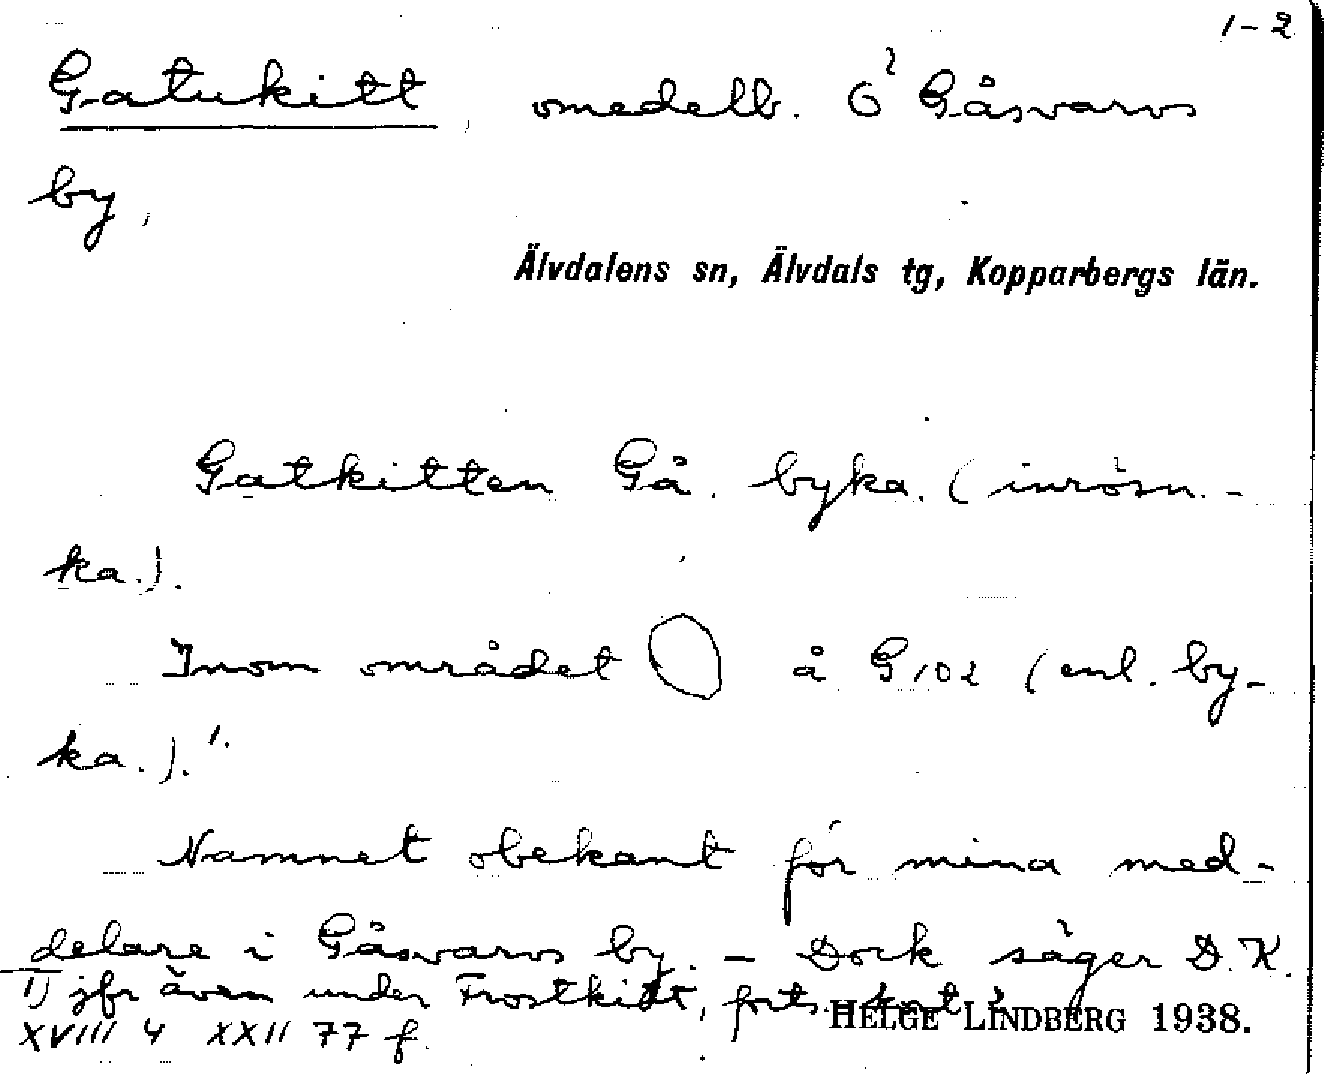 1-2
Gatukitt, omedelb. Ö? Gåsvarvs
by,
Älvdalens sn, Älvdals tg, Kopparbergs län.
Gatkitten Gå. byka. (inrösn.-
ka.).
Inom området å G 102 (enl. by-
ka.).¹⁾
Namnet obekant för mina med-
delare i Gåsvarvs by. - Dock säger D.K.
1) jfr även under Frostkitt, forts. kort!
HELGE LINDBERG 1938.
XVIII 4 XXII 77 f.